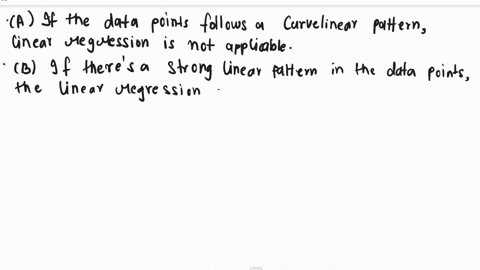 ·(A) If the data points follows a Curvelinear pattern,
linear regression is not applicable.
· (B) If there's a strong linear pattern in the data points,
the linear regression .